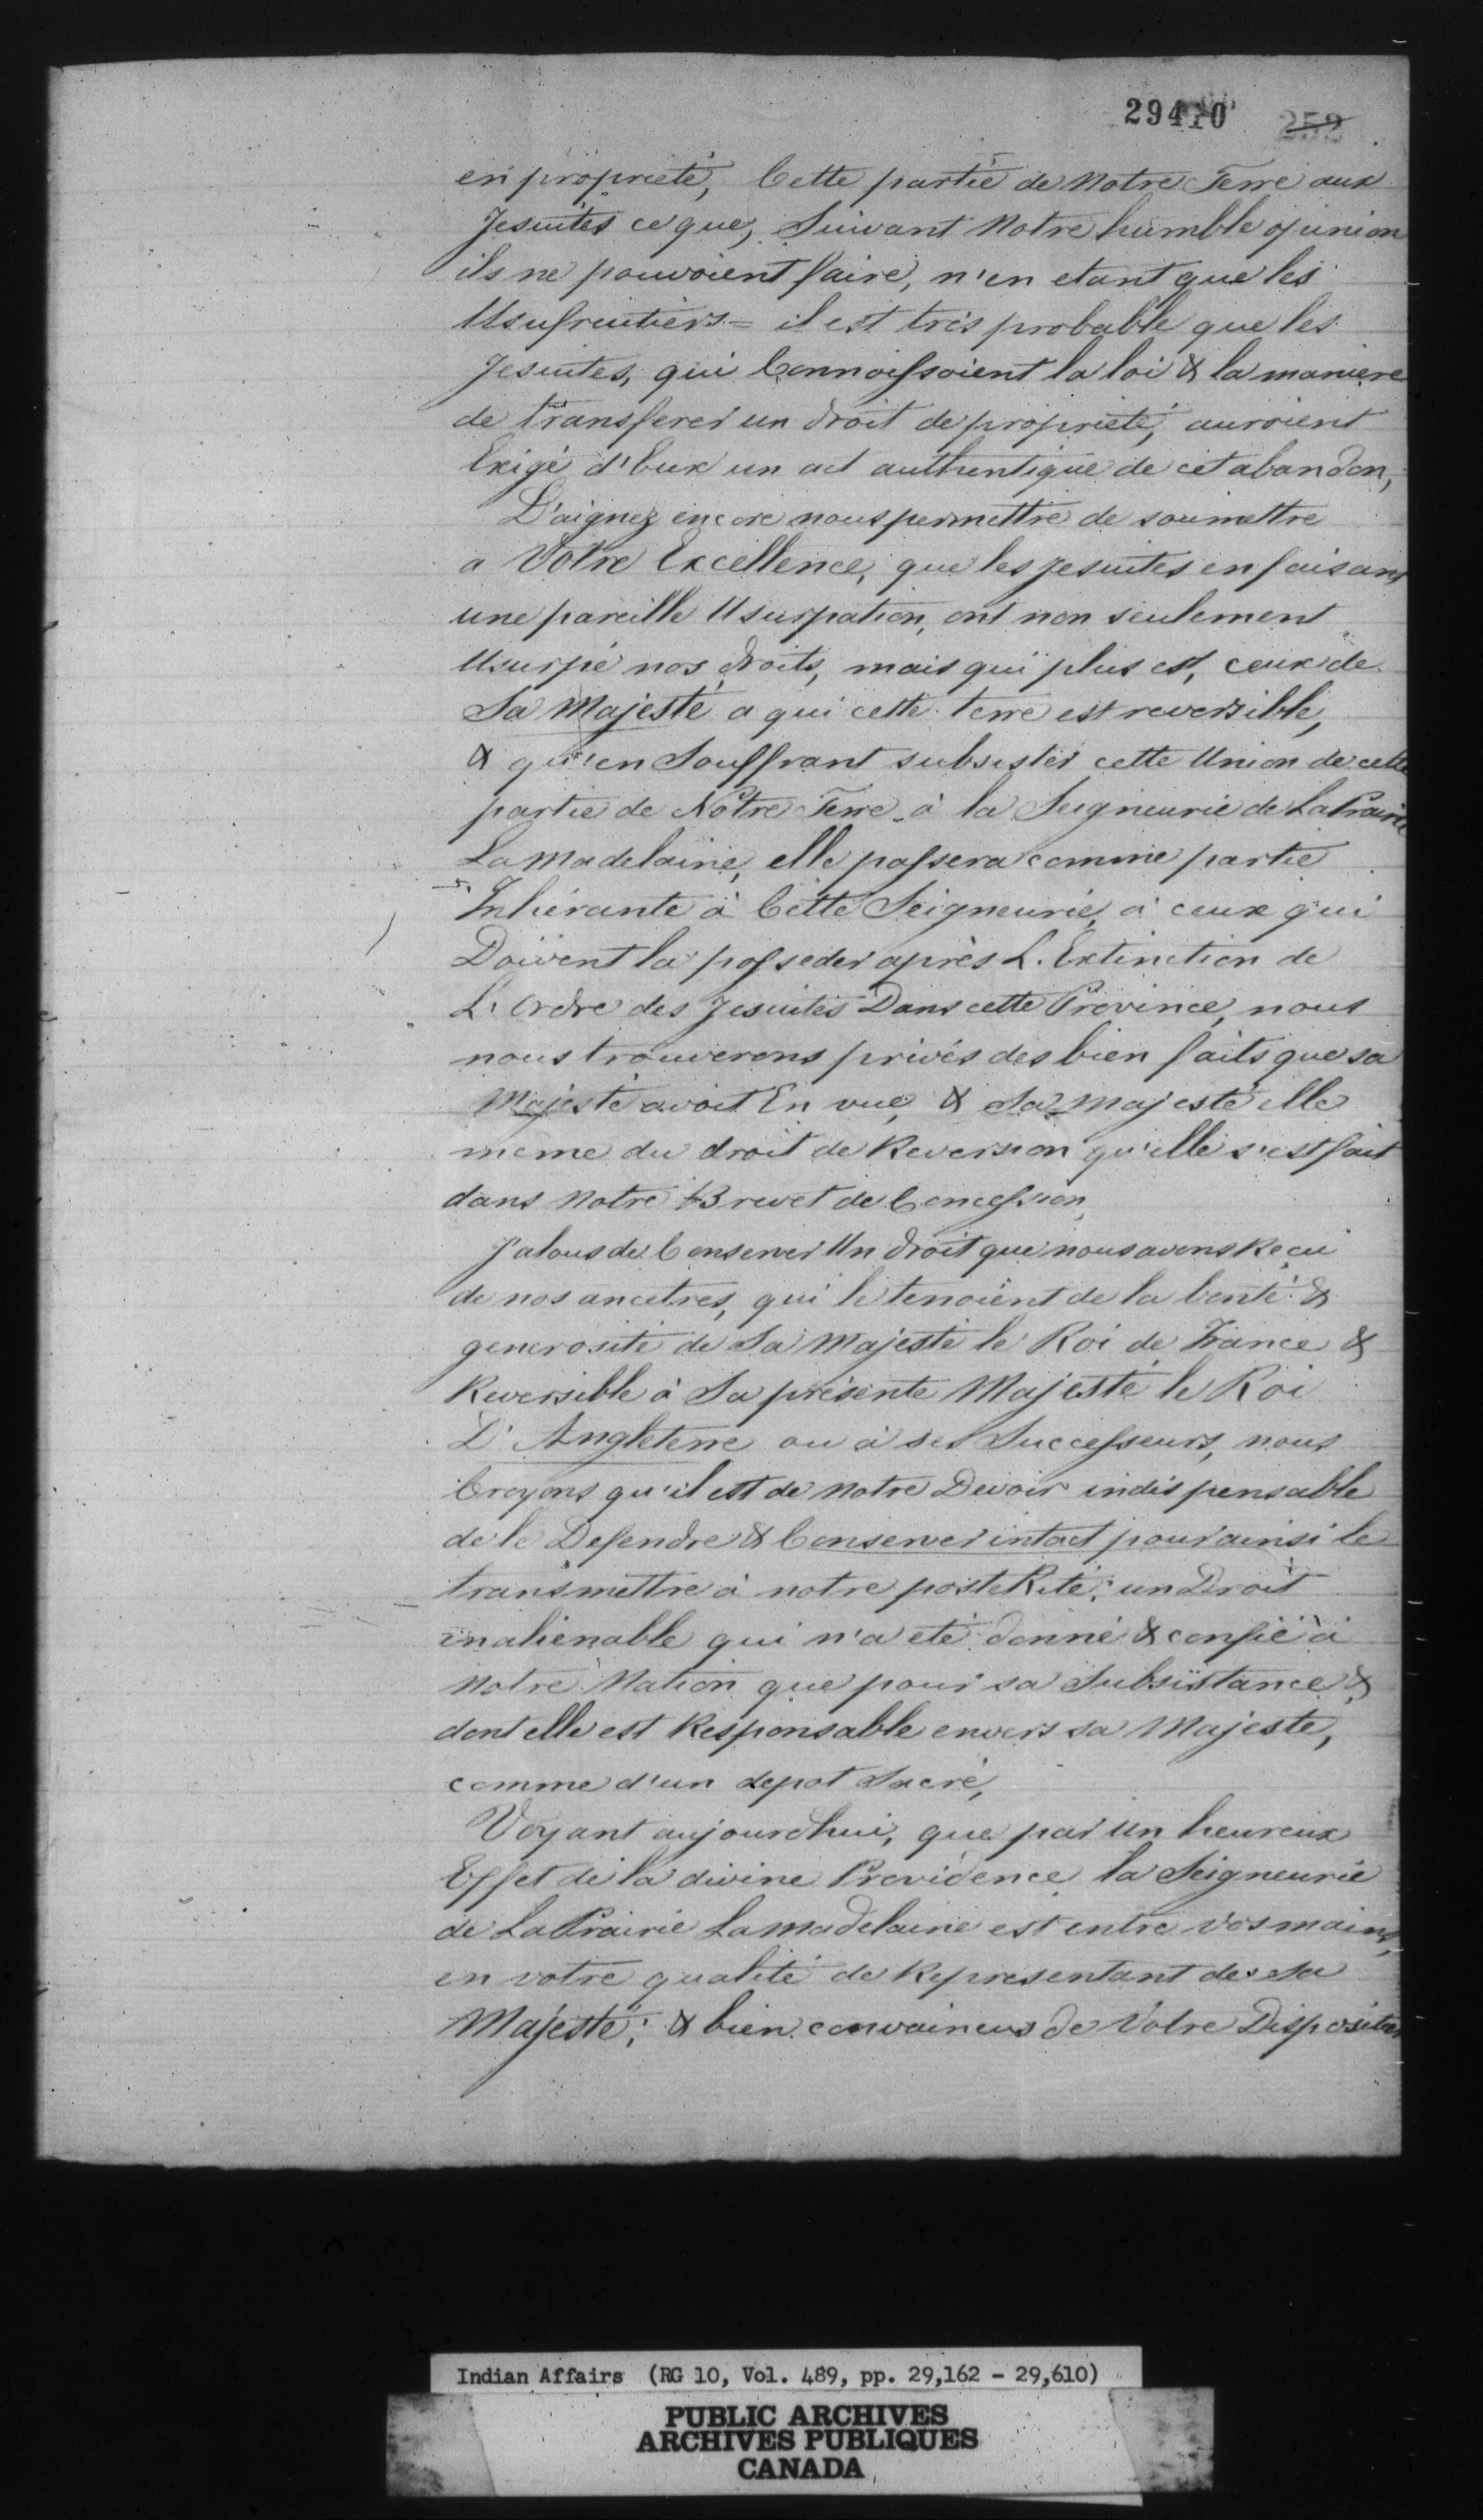 29410 252
en proprieté, Cette partie de Notre Terre aux
Jesuites ce que, Suivant Notre humble opinion
ils ne pouvoient faire, n'en etant que les
Usufruitiers = il est trés probable que les
Jesuites, qui Connoissoient la loi & la maniere
de transferer un droit de proprieté, auroient
Exigé d'Eux un act authentique de cet abandon,
D'aignez encore nous permettre de soumettre
a Votre Excellence, que les jesuites en faisant
une pareille Usurpation, ont non seulement
Usurpé nos droits, mais qui plus est, ceux de
Sa Majesté a qui cette terre est reversible,
& qu'en Souffrant subsister cette Union de cette
partie de Nôtre Terre à la Seigneurie de LaPrairie
Lamadelaine, elle passera comme partie
Inhérante à Cette Seigneurie, à ceux qui
Doivent la posseder après L'Extinction de
L'Ordre des Jesuites Dans cette Province, nous
nous trouverons privés des bien faits que sa
Majesté avoit En vue, & Sa Majesté elle
meme du droit de Reversion qu'elle s'est fait
dans Notre Brevet de Concession,
J'alous de Conserver Un droit que nous avons Reçu
de nos ancetres, qui le tenoient de la bonté &
generosité de Sa Majesté le Roi de France &
Reversible à Sa présente Majesté le Roi
D'Angleterre ou à ses Successeurs, nous
Croyons qu'il est de Notre Devoir indispensable
de le Defendre & Conserver intact pour ainsi le
transmettre à notre posteRité; un Droit
inalienable qui n'a eté donné & confié à
Notre Nation que pour sa Subsistance &
dont elle est Responsable envers sa Majeste,
comme d'un depot Sacré,
Voyant aujourdhui, que par Un heureux
Effet de la divine Providence la Seigneurie
de LaPrairie Lamadelaine est entre vos mains,
en votre qualité de Representant de Sa
Majesté; & bien convaincus de Votre Disposition
Indian Affairs (RG 10, Vol. 489, pp. 29,162 - 29,610)
PUBLIC ARCHIVES
ARCHIVES PUBLIQUES
CANADA